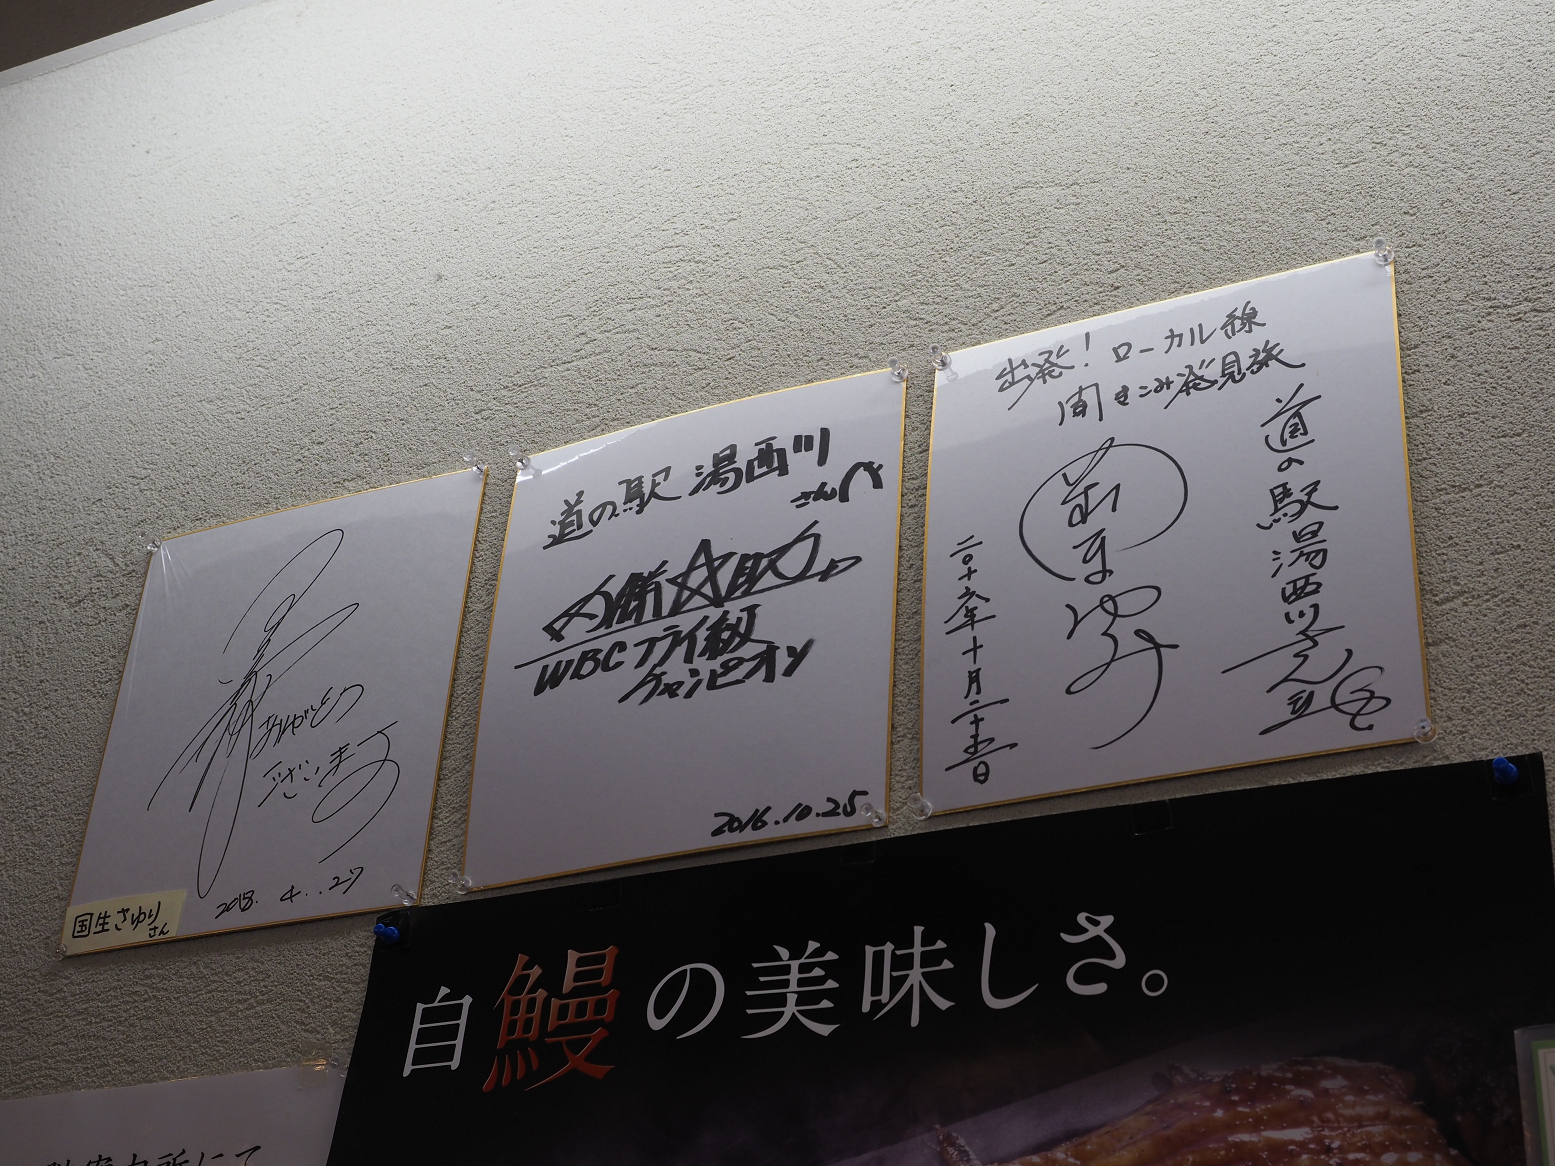 ありがとう
ございます
2018. 4. . 27
国生さゆり
さん
道の駅 湯西川
さんへ
内藤大助
WBCフライ級
チャンピオン
2016.10.25
出発！ローカル線
聞きこみ発見旅
道の駅湯西川さん
二〇十六年十月二十五日
自鰻の美味しさ。